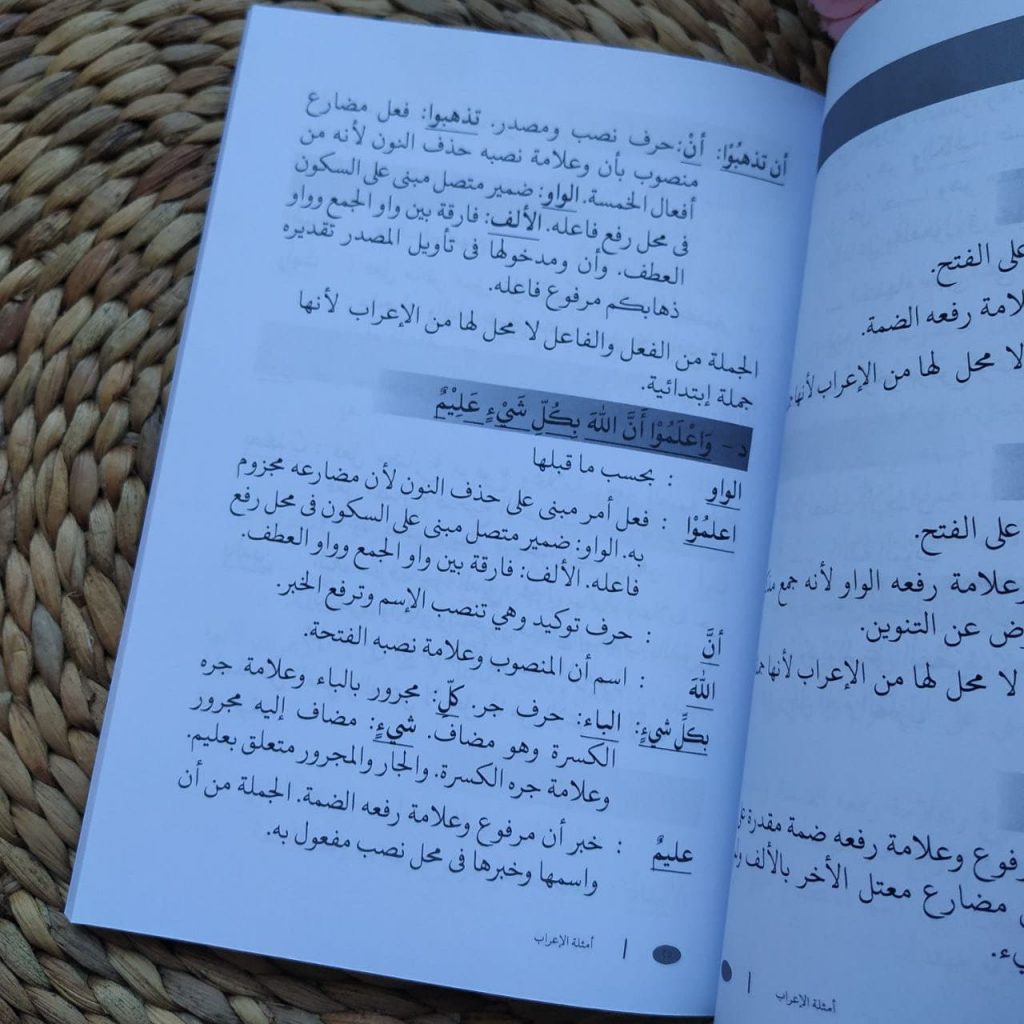 أن تذهبُوْا: أنْ: حرف نصب ومصدر. تذهبوا: فعل مضارع
منصوب بأن وعلامة نصبه حذف النون لأنه من
أفعال الخمسة. الواو: ضمير متصل مبنى على السكون
فى محل رفع فاعله. الألف: فارقة بين واو الجمع وواو
العطف. وأن ومدخولها فى تأويل المصدر تقديره
ذهابكم مرفوع فاعله.
الجملة من الفعل والفاعل لا محل لها من الإعراب لأنها
جملة إبتدائية.
د- وَاعْلَمُوْا أَنَّ اللهَ بِكُلِّ شَيْءٍ عَلِيْمٌ
الواو : بحسب ما قبلها
اعلمُوْا : فعل أمر مبنى على حذف النون لأن مضارعه مجزوم
به. الواو: ضمير متصل مبنى على السكون فى محل رفع
فاعله. الألف: فارقة بين واو الجمع وواو العطف.
أنَّ : حرف توكيد وهي تنصب الإسم وترفع الخبر.
اللهَ : اسم أن المنصوب وعلامة نصبه الفتحة.
بكلِّ شيءٍ: الباء: حرف جر. كلِّ: مجرور بالباء وعلامة جره
الكسرة وهو مضاف. شيءٍ: مضاف إليه مجرور
وعلامة جره الكسرة. والجار والمجرور متعلق بعليم.
عليمٌ : خبر أن مرفوع وعلامة رفعه الضمة. الجملة من أن
واسمها وخبرها فى محل نصب مفعول به.
أمثلة الإعراب
على الفتح.
رفعه الضمة.
لا محل لها من الإعراب لأنها
على الفتح.
وعلامة رفعه الواو لأنه جمع
عن التنوين.
لا محل لها من الإعراب لأنها
وعلامة رفعه ضمة مقدرة
مضارع معتل الأخر بالألف
أمثلة الإعراب